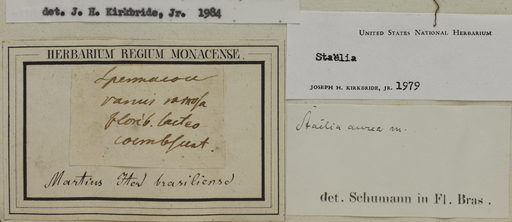 det. J. H. Kirkbride, Jr. 1984
HERBARIUM REGIUM MONACENSE.
Spermacoce
florib. lacteo
Martius Iter brasiliense
UNITED STATES NATIONAL HERBARIUM
Staëlia
JOSEPH H. KIRKBRIDE, JR. 1979
Staëlia aurea m.
det. Schumann in Fl. Bras.